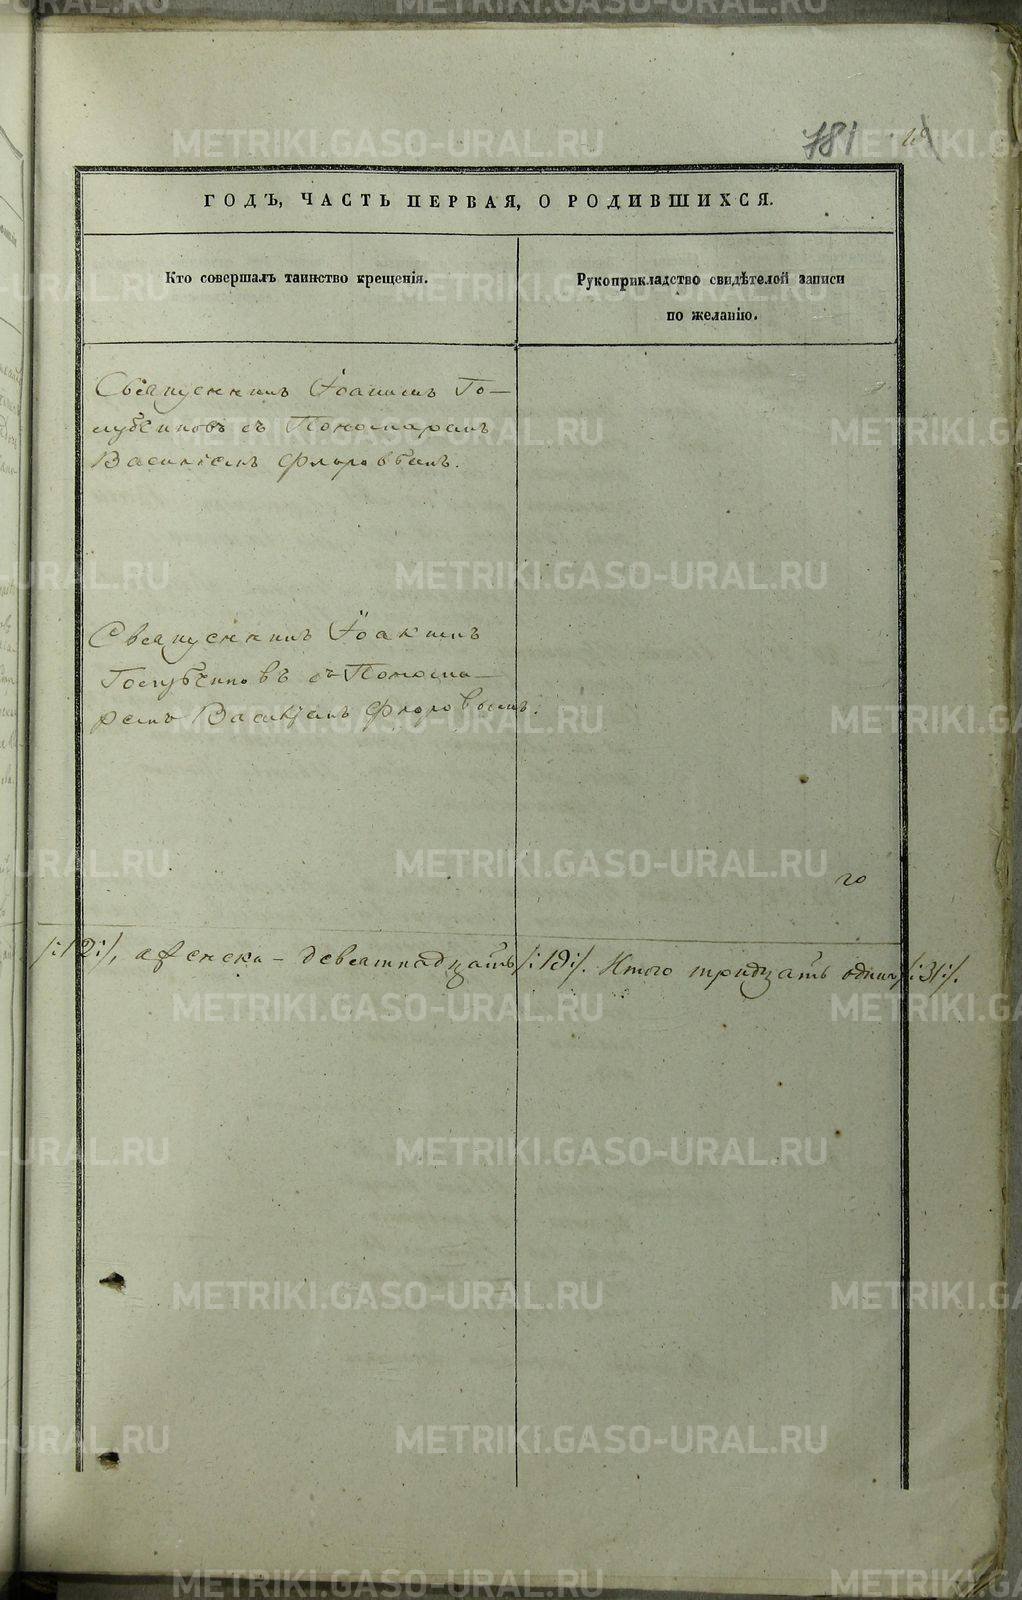 781
ГОДЪ, ЧАСТЬ ПЕРВАЯ, О РОДИВШИХСЯ.
Кто совершалъ таинство крещенія.
Рукоприкладство свидѣтелей записи
по желанію.
Священникъ Іоакимъ Го-
лубчиковъ съ Пономаремъ
Василіемъ Флоровымъ.
Священникъ Іоакимъ
Голубчиковъ съ Понома-
ремъ Василіемъ Флоровымъ.
го
/:12:/, женска - девятнадцать /:19:/. Итого тридцать одинъ /:31:/.
METRIKI.GASO-URAL.RU